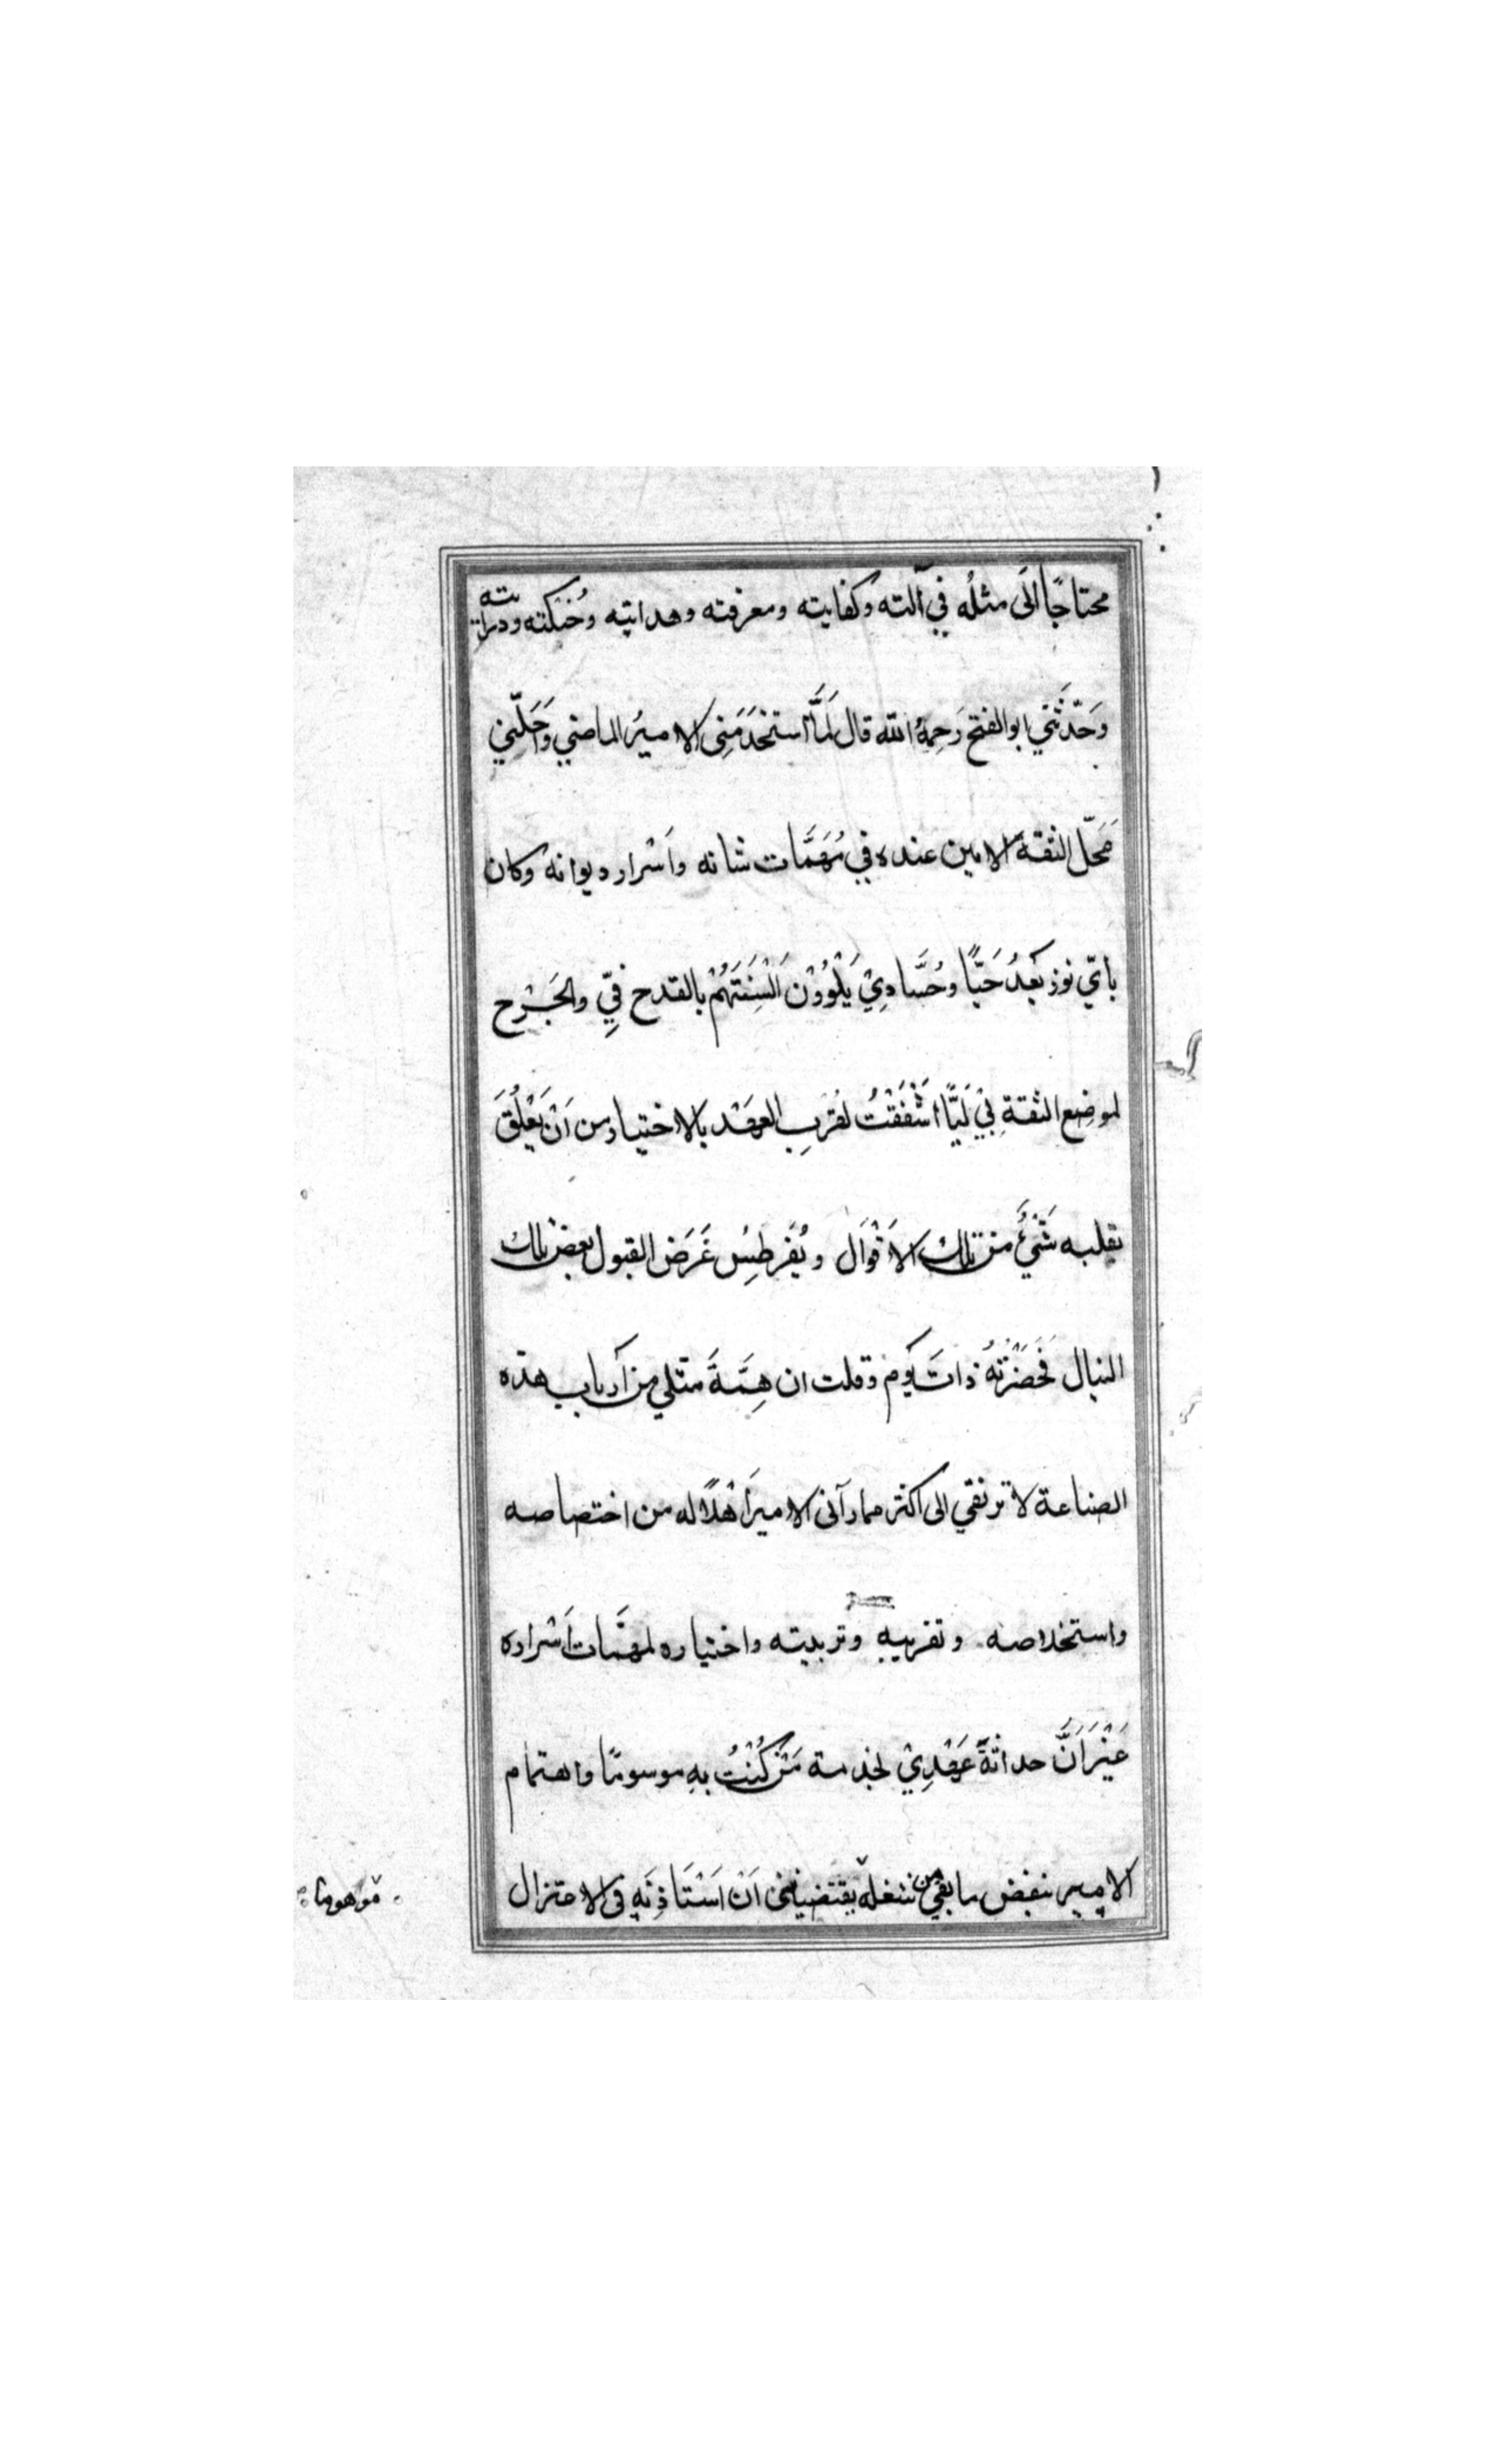 محتاجًا الَى مثلُه في آلته وكفايته ومعرفته وهدايته وحُنكته ودرايته
وَحَدّثَني ابو الفتح رَحِمهُ الله قال لَمَّا استخدَمَنِى الاميرُ الماضي وَاَحَلّنِي
مَحَلّ الثقة الامين عنده في مُهَمَّات شانه واَسْرار ديوانه وكان
بايّ توز بَعدُ حَيًّا وحُسَّادِيْ يَلْوُوْنَ اَلْسِنَتَهُمْ بالقدح فِيّ والجَرْح
لموضِع الثقةِ بِيْ لَيًّا اَشْفَقْتُ لقُربِ العَهْد بالاختيار من اَنْ يَعْلُقَ
بقلبه شَيْئٌ من تلك الاَقْوَال ويُقَرطِسُ غَرَضَ القبول بعض تلك
النبال فَحَضَرْتُهُ ذاتَ يَوم وقلت ان هِمَّةَ مثلي من اَرباب هذه
الصناعة لا ترتقي الى اكثر مما رآنى الامير اَهْلًا له من اختصاصه
واستخلاصه وتقريبه وتربيته واختياره لمهمَّات اَسْراره
غَيْرَ اَنَّ حداثةَ عَهْدِيْ لخدمة مَنْ كُنْتُ بِهِ موسومًا واهتمام
الامير بنقض ما بقي من شغله يقتضيانى اَنْ اَسْتَاذِنَهِ فى الاعتزال